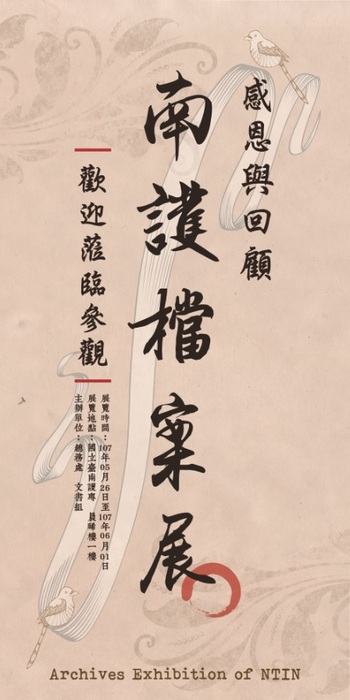 感恩與回顧
南護檔案展
歡迎蒞臨參觀
展覽時間：107年05月26日至107年06月01日
展覽地點：國立臺南護專 晨晞樓一樓
主辦單位：總務處 文書組
Archives Exhibition of NTIN